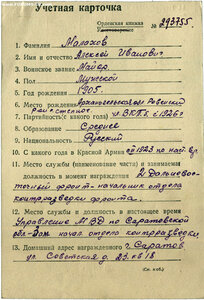 Учетная карточка
Орденская книжка
№ 293755.
1. Фамилия Малахов
2. Имя и отчество Алексей Иванович
3. Воинское звание Майор
4. Пол Мужской
5. Год рождения 1905.
6. Место рождения
7. Партийность (с какого года) ВКП(б) с 1926 г
8. Образование Среднее
9. Национальность Русский
10. С какого года в Красной Армии с 1923 по
11. Место службы (наименование части) и занимаемая
должность в момент награждения 2 Дальнево-
сточный фронт - начальник отдела
контрразведки фронта.
12. Место службы и должность в настоящее время
Управление МВД по Саратовской
обл - начал отдела контрразведки
13. Домашний адрес награжденного г. Саратов
ул. Советская д. 23 кв 18
(см. на об.)